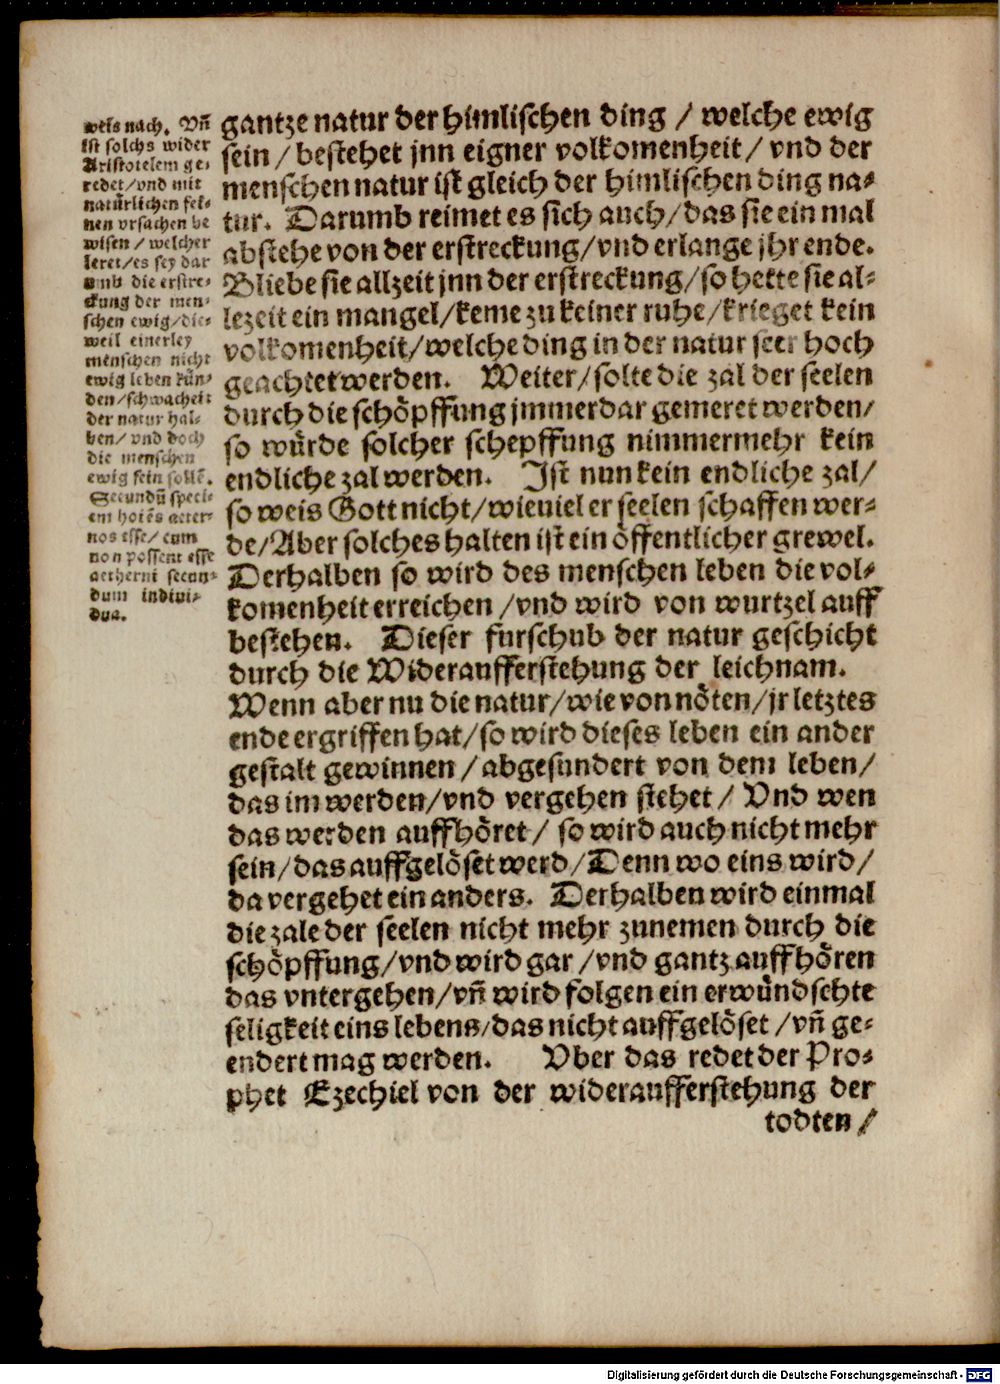 weis nach. Vñ
ist solchs wider
Aristotelem ge-
redet/vnd mit
natürlichen fei-
nen vrsachen be
wisen / welcher
leret/es sey dar
umb die erstre-
ckung der men-
schen ewig/die-
weil einerley
menschen nicht
ewig leben kün-
den/schwacheit
der natur hal-
ben/ vnd doch
die menschen
ewig sein sollē.
Secundū speci-
em hoiēs aeter-
nos esse/ cum
non possent esse
aetherni secun-
dum indiui-
dua.
gantze natur der himlischen ding / welche ewig
sein/ bestehet jnn eigner volkomenheit/ vnd der
menschen natur ist gleich der himlischen ding na-
tur. Darumb reimet es sich auch/das sie ein mal
abstehe von der erstreckung/vnd erlange jhr ende.
Bliebe sie allzeit jnn der erstreckung/so hette sie al-
lezeit ein mangel/keme zu keiner ruhe/krieget kein
volkomenheit/welche ding in der natur seer hoch
geachtet werden. Weiter/solte die zal der seelen
durch die schöpffung jmmerdar gemeret werden/
so würde solcher schepffung nimmermehr kein
endliche zal werden. Ist nun kein endliche zal/
so weis Gott nicht/wieuiel er seelen schaffen wer-
de/Aber solches halten ist ein öffentlicher grewel.
Derhalben so wird des menschen leben die vol-
komenheit erreichen /vnd wird von wurtzel auff
bestehen. Dieser furschub der natur geschicht
durch die Wideraufferstehung der leichnam.
Wenn aber nu die natur/wie von nöten/jr letztes
ende ergriffen hat/so wird dieses leben ein ander
gestalt gewinnen /abgesundert von dem leben/
das im werden/vnd vergehen stehet/ Vnd wen
das werden auffhöret/ so wird auch nicht mehr
sein/das auffgelöset werd/Denn wo eins wird/
da vergehet ein anders. Derhalben wird einmal
die zale der seelen nicht mehr zunemen durch die
schöpffung/vnd wird gar /vnd gantz auffhören
das vntergehen/vñ wird folgen ein erwündschte
seligkeit eins lebens/das nicht auffgelöset /vñ ge-
endert mag werden. Vber das redet der Pro-
phet Ezechiel von der wideraufferstehung der
todten /
Digitalisierung gefördert durch die Deutsche Forschungsgemeinschaft - DFG